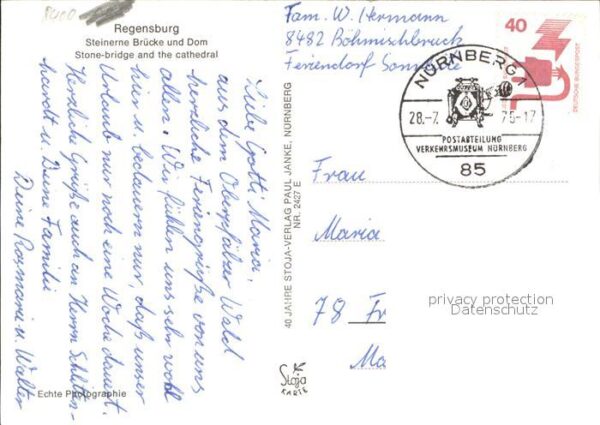 8400
Regensburg
Steinerne Brücke und Dom
Stone-bridge and the cathedral
Liebe Gotti Maria,
aus dem Oberpfälzer Wald
herzliche Feriengrüße von uns
allen. Wir fühlen uns sehr wohl
hier u. bedauern nur, daß unser
Urlaub nur noch eine Woche dauert.
Herzliche Grüße auch an Herrn
u. Deine Familie
Deine Rosmarie u. Walter
Echte Photographie
40 JAHRE STOJA-VERLAG PAUL JANKE, NÜRNBERG
NR. 2427 E
Stoja
KARTE
Fam. W. Hermann
8482 Böhmischbruck
Feriendorf
40
DEUTSCHE BUNDESPOST
NÜRNBERG 1
28.-7. 75-17
POSTABTEILUNG
VERKEHRSMUSEUM NÜRNBERG
85
Frau
Maria
78 Fr
Ma
privacy protection
Datenschutz